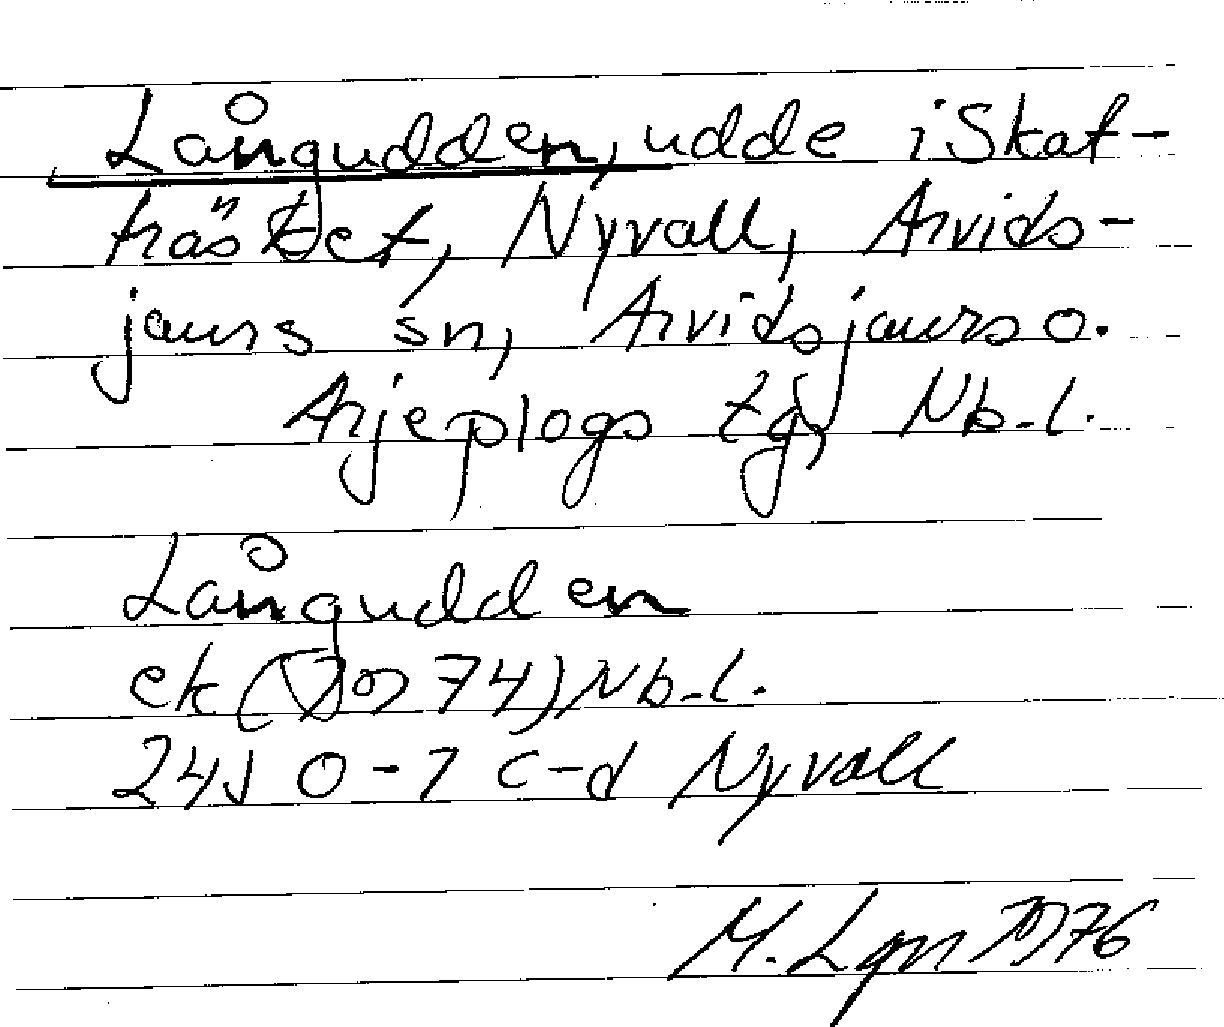 Långudden, udde i Skat-
träsket, Nyvall, Arvids-
jaurs sn, Arvidsjaurs o.
Arjeplogs tg, Nb-l.
Långudden
ek (1974) Nb-l.
24J 0-1 c-d Nyvall
M. Lgn 1976